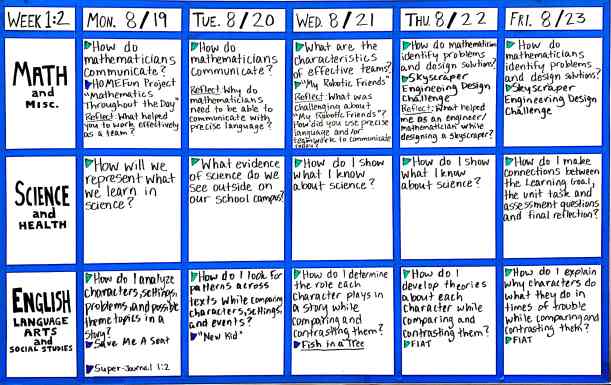 WEEK 1:2
MON. 8/19
TUE. 8/20
WED. 8/21
THU. 8/22
FRI. 8/23
MATH
and
MISC.
How do
mathematicians
communicate?
HOMEFun Project
"Mathematics
Throughout the Day"
Reflect: What helped
you to work effectively
as a team?
How do
mathematicians
communicate?
Reflect: Why do
mathematicians
need to be able to
communicate with
precise language?
What are the
characteristics
of effective teams?
"My Robotic Friends"
Reflect: What was
challenging about
"My Robotic Friends"?
How did you use precise
language and/or
teamwork to communicate
How do mathematicians
identify problems
and design solutions?
Skyscraper
Engineering Design
Challenge
Reflect: What helped
me as an engineer/
mathematician while
designing a skyscraper?
How do
mathematicians
identify problems
and design solutions?
Skyscraper
Engineering Design
Challenge
SCIENCE
and
HEALTH
How will we
represent what
we learn in
science?
What evidence
of science do we
see outside on
our school campus?
How do I show
what I know
about science?
How do I show
what I know
about science?
How do I make
connections between
the Learning Goal,
the unit task and
assessment questions
and final reflection?
ENGLISH
LANGUAGE
ARTS
and
SOCIAL STUDIES
How do I analyze
characters, settings,
problems, and possible
theme topics in a
story?
Save Me A Seat
Super-Journal 1:2
How do I look for
patterns across
texts while comparing
characters, settings,
and events?
"New Kid"
How do I determine
the role each
character plays in
a story while
comparing and
contrasting them?
Fish in a Tree
How do I
develop theories
about each
character while
comparing and
contrasting them?
FIAT
How do I explain
why characters do
what they do in
times of trouble
while comparing and
contrasting them?
FIAT